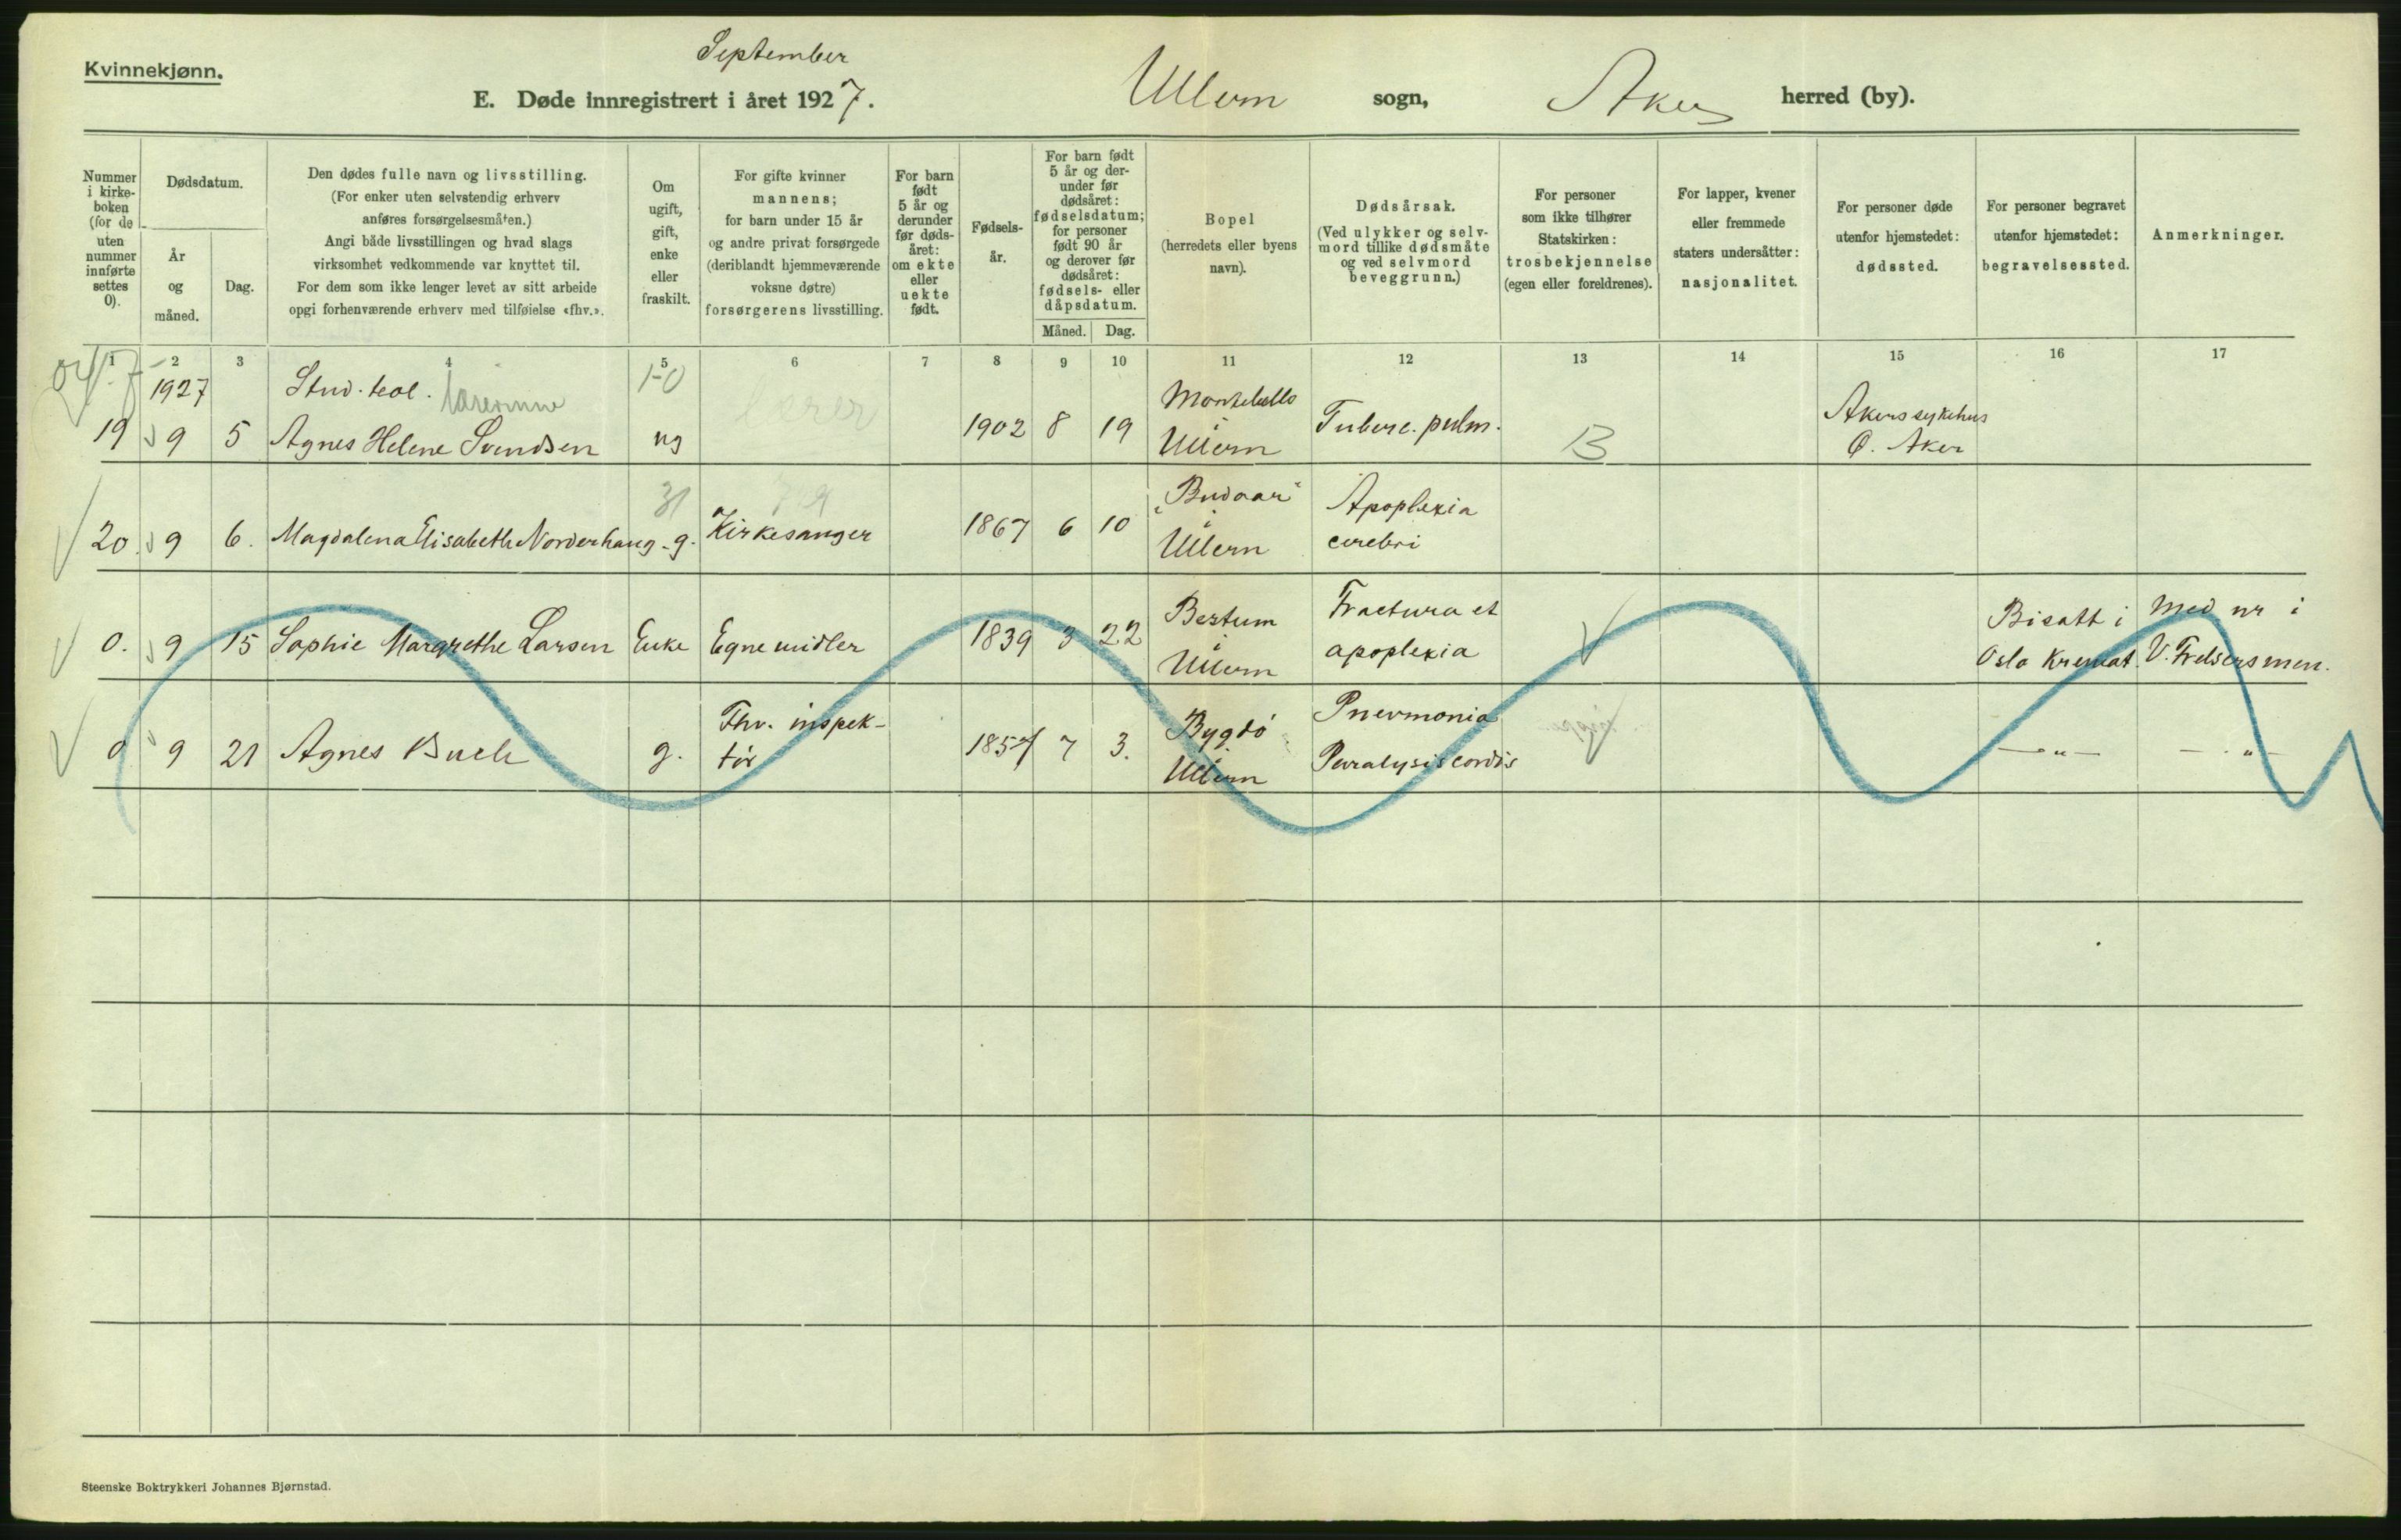 Kvinnekjønn.
September
E. Døde innregistrert i året 1927.
Ullern sogn, Aker herred (by).
Nummer i kirke-boken (for de uten nummer innførte settes 0).
Dødsdatum.
År og måned.
Dag.
Den dødes fulle navn og livsstilling.
(For enker uten selvstendig erhverv
anføres forsørgelsesmåten.)
Angi både livsstillingen og hvad slags
virksomhet vedkommende var knyttet til.
For dem som ikke lenger levet av sitt arbeide
opgi forhenværende erhverv med tilføielse «fhv.».
Om
ugift,
gift,
enke
eller
fraskilt.
For gifte kvinner
mannens;
for barn under 15 år
og andre privat forsørgede
(deriblandt hjemmeværende
voksne døtre)
forsørgerens livsstilling.
For barn
født
5 år og
derunder
før døds-
året:
om ekte
eller
uekte
født.
Fødsels-
år.
For barn født
5 år og der-
under før
dødsåret:
fødselsdatum;
for personer
født 90 år
og derover før
dødsåret:
fødsels- eller
dåpsdatum.
Måned. Dag.
Bopel
(herredets eller byens
navn).
Dødsårsak.
(Ved ulykker og selv-
mord tillike dødsmåte
og ved selvmord
beveggrunn.)
For personer
som ikke tilhører
Statskirken:
trosbekjennelse
(egen eller foreldrenes).
For lapper, kvener
eller fremmede
staters undersåtter:
nasjonalitet.
For personer døde
utenfor hjemstedet:
dødssted.
For personer begravet
utenfor hjemstedet:
begravelsessted.
Anmerkninger.
1 2 3 4 5 6 7 8 9 10 11 12 13 14 15 16 17
1927 Stud. teol. lærerinne 1-0 Lærer Montebello Akers sykehus
19 9 5 Agnes Helene Svendsen ug 1902 8 19 Ullern Tuberc. pulm. B Ø. Aker
31 "Budaar" Apoplexia
20. 9 6. Magdalena Elisabeth Norderhaug - g. Kirkesanger 1867 6 10 Ullern cerebri
Bestum Fractura et Bisatt i Med nr i
0. 9 15 Sophie Margrethe Larsen Enke Egne midler 1839 3 22 Ullern apoplexia Oslo Kremat. V. Frelsers men.
Fhv. inspek- Bygdö Pnevmonia
0 9 21 Agnes Buch g. tör 1857 7 3. Ullern Paralysis cordis — " — — " —
Steenske Boktrykkeri Johannes Bjørnstad.